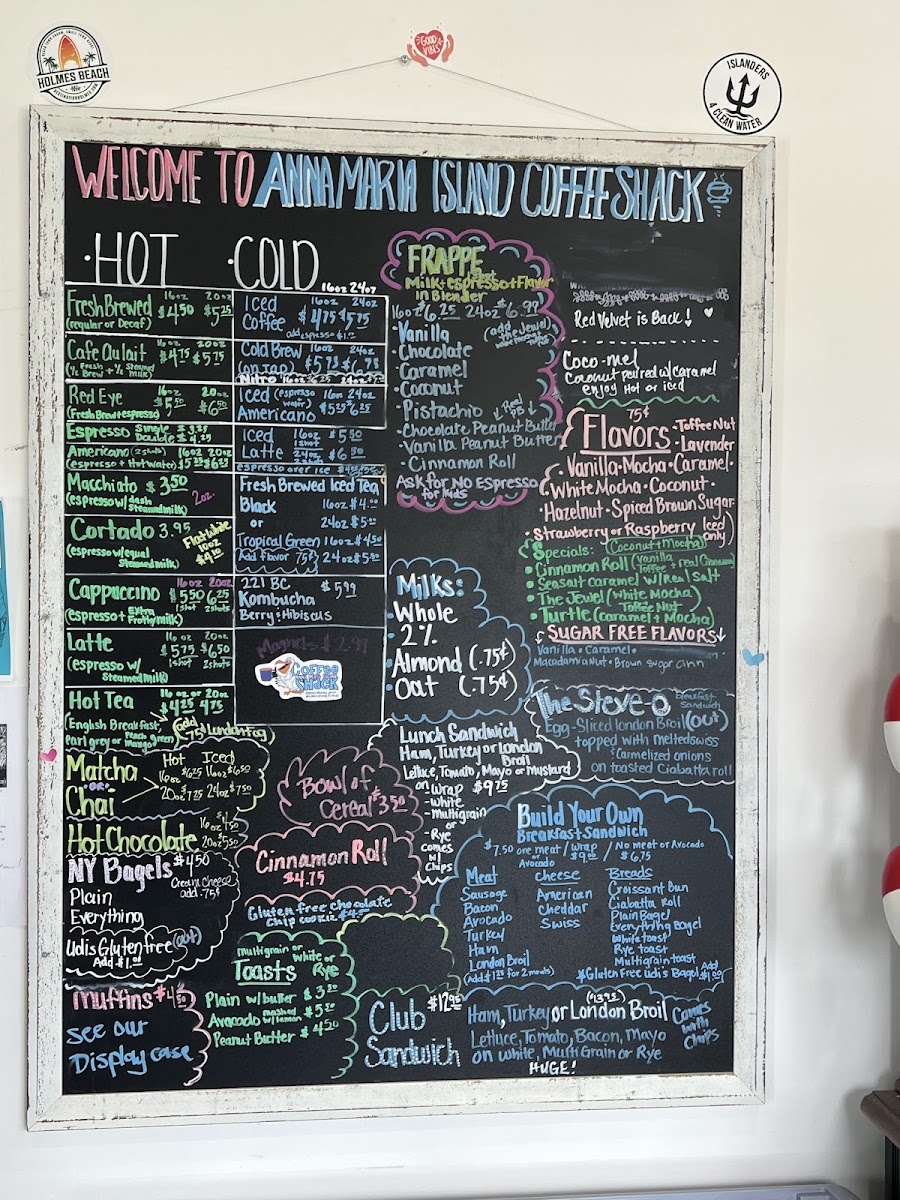 HOLMES BEACH
GOOD VIBES
ISLANDERS
4 CLEAN WATER
WELCOME TO ANNA MARIA ISLAND COFFEE SHACK
·HOT
Fresh Brewed 16oz $4.50 20oz $5.25
(regular or Decaf)
Cafe Au lait 16oz $4.75 20oz $5.75
(½ Fresh Brew + ½ Steamed milk)
Red Eye 16oz 20oz
(Fresh Brew+espresso)
Espresso Single $3.25
Double $4.25
Americano (2 shots) 16oz 20oz
(espresso + Hot Water)
Macchiato $3.50
(espresso w/ dash Steamed milk) 2oz.
Cortado 3.95
(espresso w/equal Steamed milk)
Flat White
10oz
Cappuccino 16oz 5.50 20oz 6.25
1 shot 2 shots
(espresso + Extra Frothy milk)
Latte 16oz $5.75 20oz $6.50
(espresso w/ Steamed milk) 1 shot 2 shots
Hot Tea 16oz or 20oz
$4.25 4.75
(English Breakfast
earl grey or Peach green mango)
(add .75¢ London Fog)
Matcha
or
Chai
Hot Iced
16oz $6.25 16oz $6.50
20oz $7.25 24oz $7.50
Hot Chocolate 16oz $4.50
20oz $5.50
NY Bagels $4.50
Cream cheese
add .75¢
Plain
Everything
Udis Gluten free (out)
Add $1.00
Muffins
see our
Display case
·COLD
16oz 24oz
Iced 16oz 24oz
Coffee $4.75 $5.75
add espresso
Cold Brew 16oz 24oz
(on tap) $5.75
Nitro
Iced (espresso water) 16oz 24oz
Americano $5.25 6.25
Iced 16oz $5.50
1 shot
Latte 24oz $6.50
2 shots
espresso over ice
Fresh Brewed Iced Tea
Black 16oz $4.00
or 24oz $5.00
Tropical Green 16oz $4.50
(Add flavor 75¢) 24oz $5.50
221 BC $5.99
Kombucha
Berry·Hibiscus
Magnets $2.99
COFFEE
SHACK
Bowl of
Cereal $3.50
Cinnamon Roll
$4.75
Gluten free chocolate
chip cookie
multigrain or white or
Toasts Rye
Plain w/butter $3.50
Avocado mashed w/lemon
Peanut Butter $4.50
FRAPPE
Milk+espresso+Flavor
in Blender
16oz $6.25 24oz $6.99
·Vanilla
·Chocolate
·Caramel
·Coconut
·Pistachio
·Chocolate Peanut Butter
·Vanilla Peanut Butter
·Cinnamon Roll
Ask for NO Espresso
for kids
Milks:
·Whole
·2%
·Almond (.75¢)
·Oat (.75¢)
Lunch Sandwich
Ham, Turkey or London Broil
Lettuce, Tomato, Mayo or Mustard
on Wrap $9.75
-white
-multigrain
or
Rye
comes
w/
Chips
Red Velvet is Back!
Coco-mel
Coconut paired w/caramel
enjoy Hot or iced
75¢
Flavors ·Toffee Nut
·Lavender
·Vanilla·Mocha·Caramel·
·White Mocha·Coconut·
·Hazelnut·Spiced Brown Sugar
·Strawberry or Raspberry (Iced only)
·Specials: (Coconut+Mocha)
·Cinnamon Roll (Vanilla Toffee + real Cinnamon)
·Seasalt caramel w/Real Salt
·The Jewel (White Mocha)
·Turtle (Toffee Nut caramel + Mocha)
SUGAR FREE FLAVORS
Vanilla · Caramel ·
Macadamia Nut · Brown Sugar Cinn
The Steve-O breakfast Sandwich
Egg-Sliced london Broil (out)
topped with melted swiss
+ Carmelized onions
on toasted Ciabatta roll
Build Your Own
Breakfast Sandwich
$7.50 one meat or Avocado / Wrap $9.00 / No meat or Avocado $6.75
Meat
Sausage
Bacon
Avocado
Turkey
Ham
London Broil
(Add $1.25 for 2 meats)
cheese
American
cheddar
Swiss
Breads
Croissant Bun
Ciabatta Roll
Plain Bagel
Everything Bagel
White toast
Rye toast
Multigrain toast
*Gluten Free Udis Bagel Add $1.00
Club $12.95
Sandwich
Ham, Turkey or London Broil ($13.95)
Lettuce, Tomato, Bacon, Mayo
on White, Multi Grain or Rye
HUGE!
Comes
with
Chips